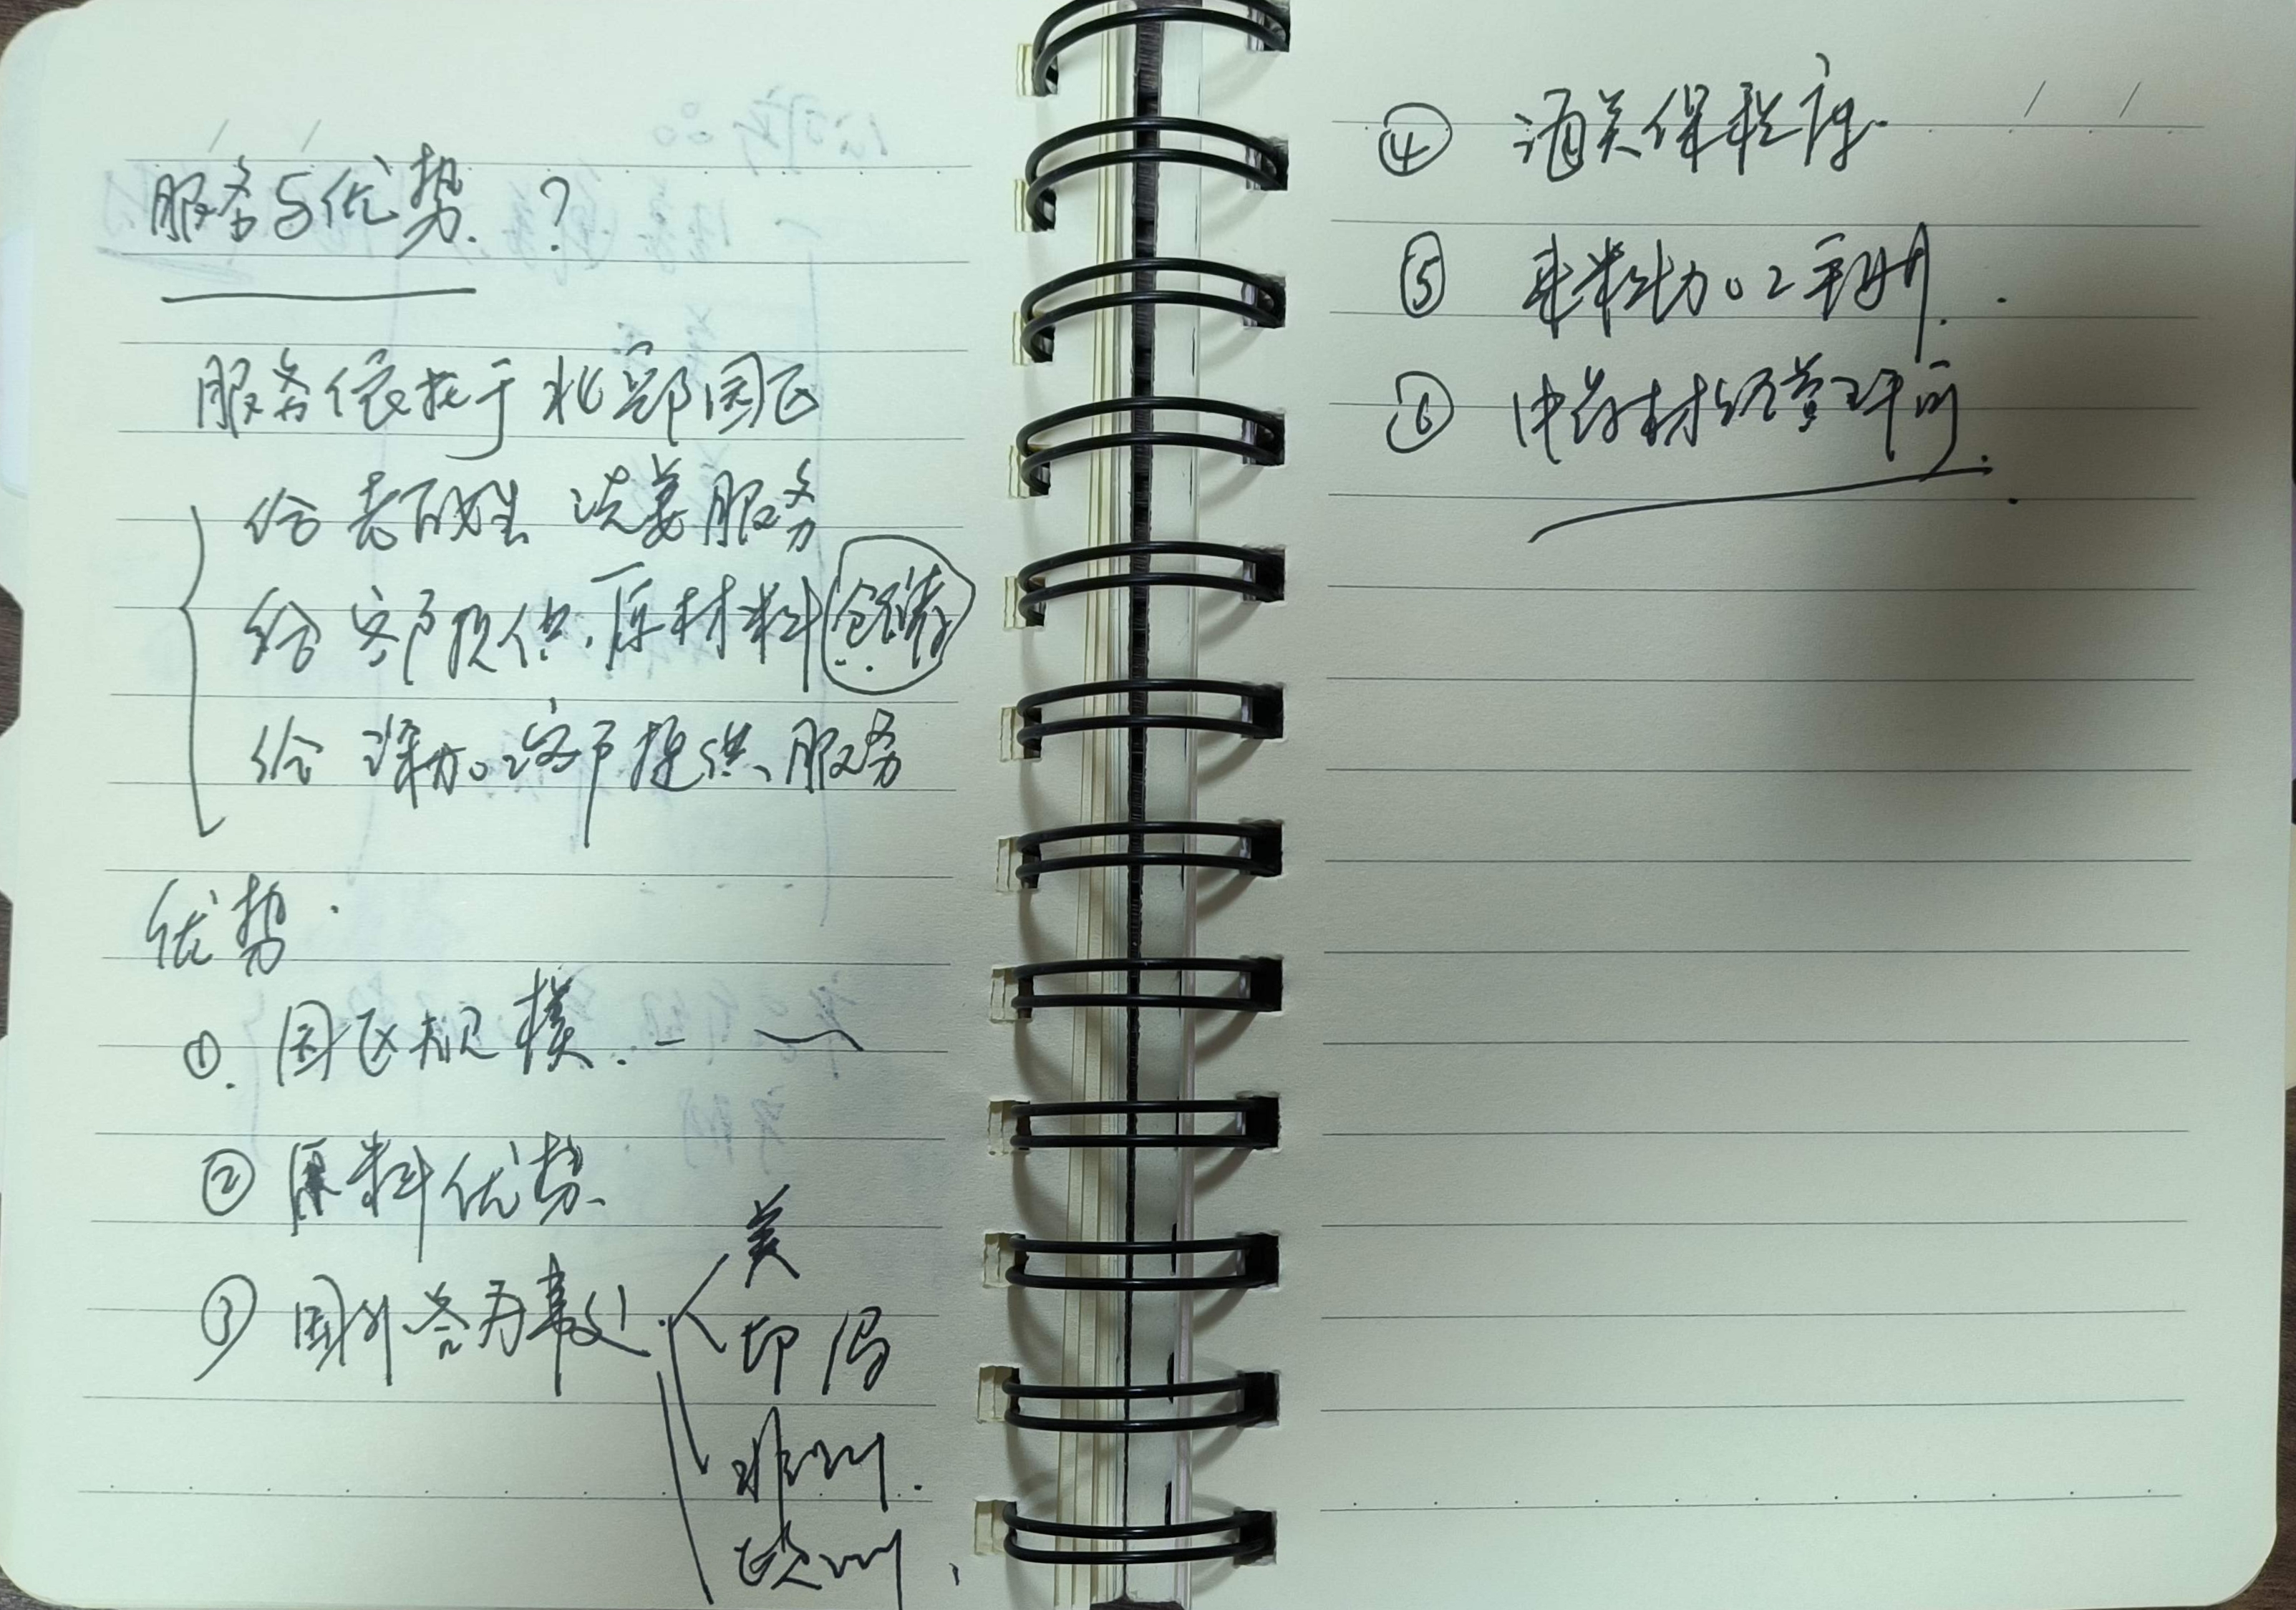 服务与优势？
服务依托于北部园区
给老百姓 洗姜服务
给客户提供原材料仓储
给深加工客户提供服务
优势
① 园区规模
② 原料优势
③ 国外各办事处
美
印尼
非洲
欧洲
④ 海关保税库
⑤ 来料加工手册
⑥ 中药材经营许可